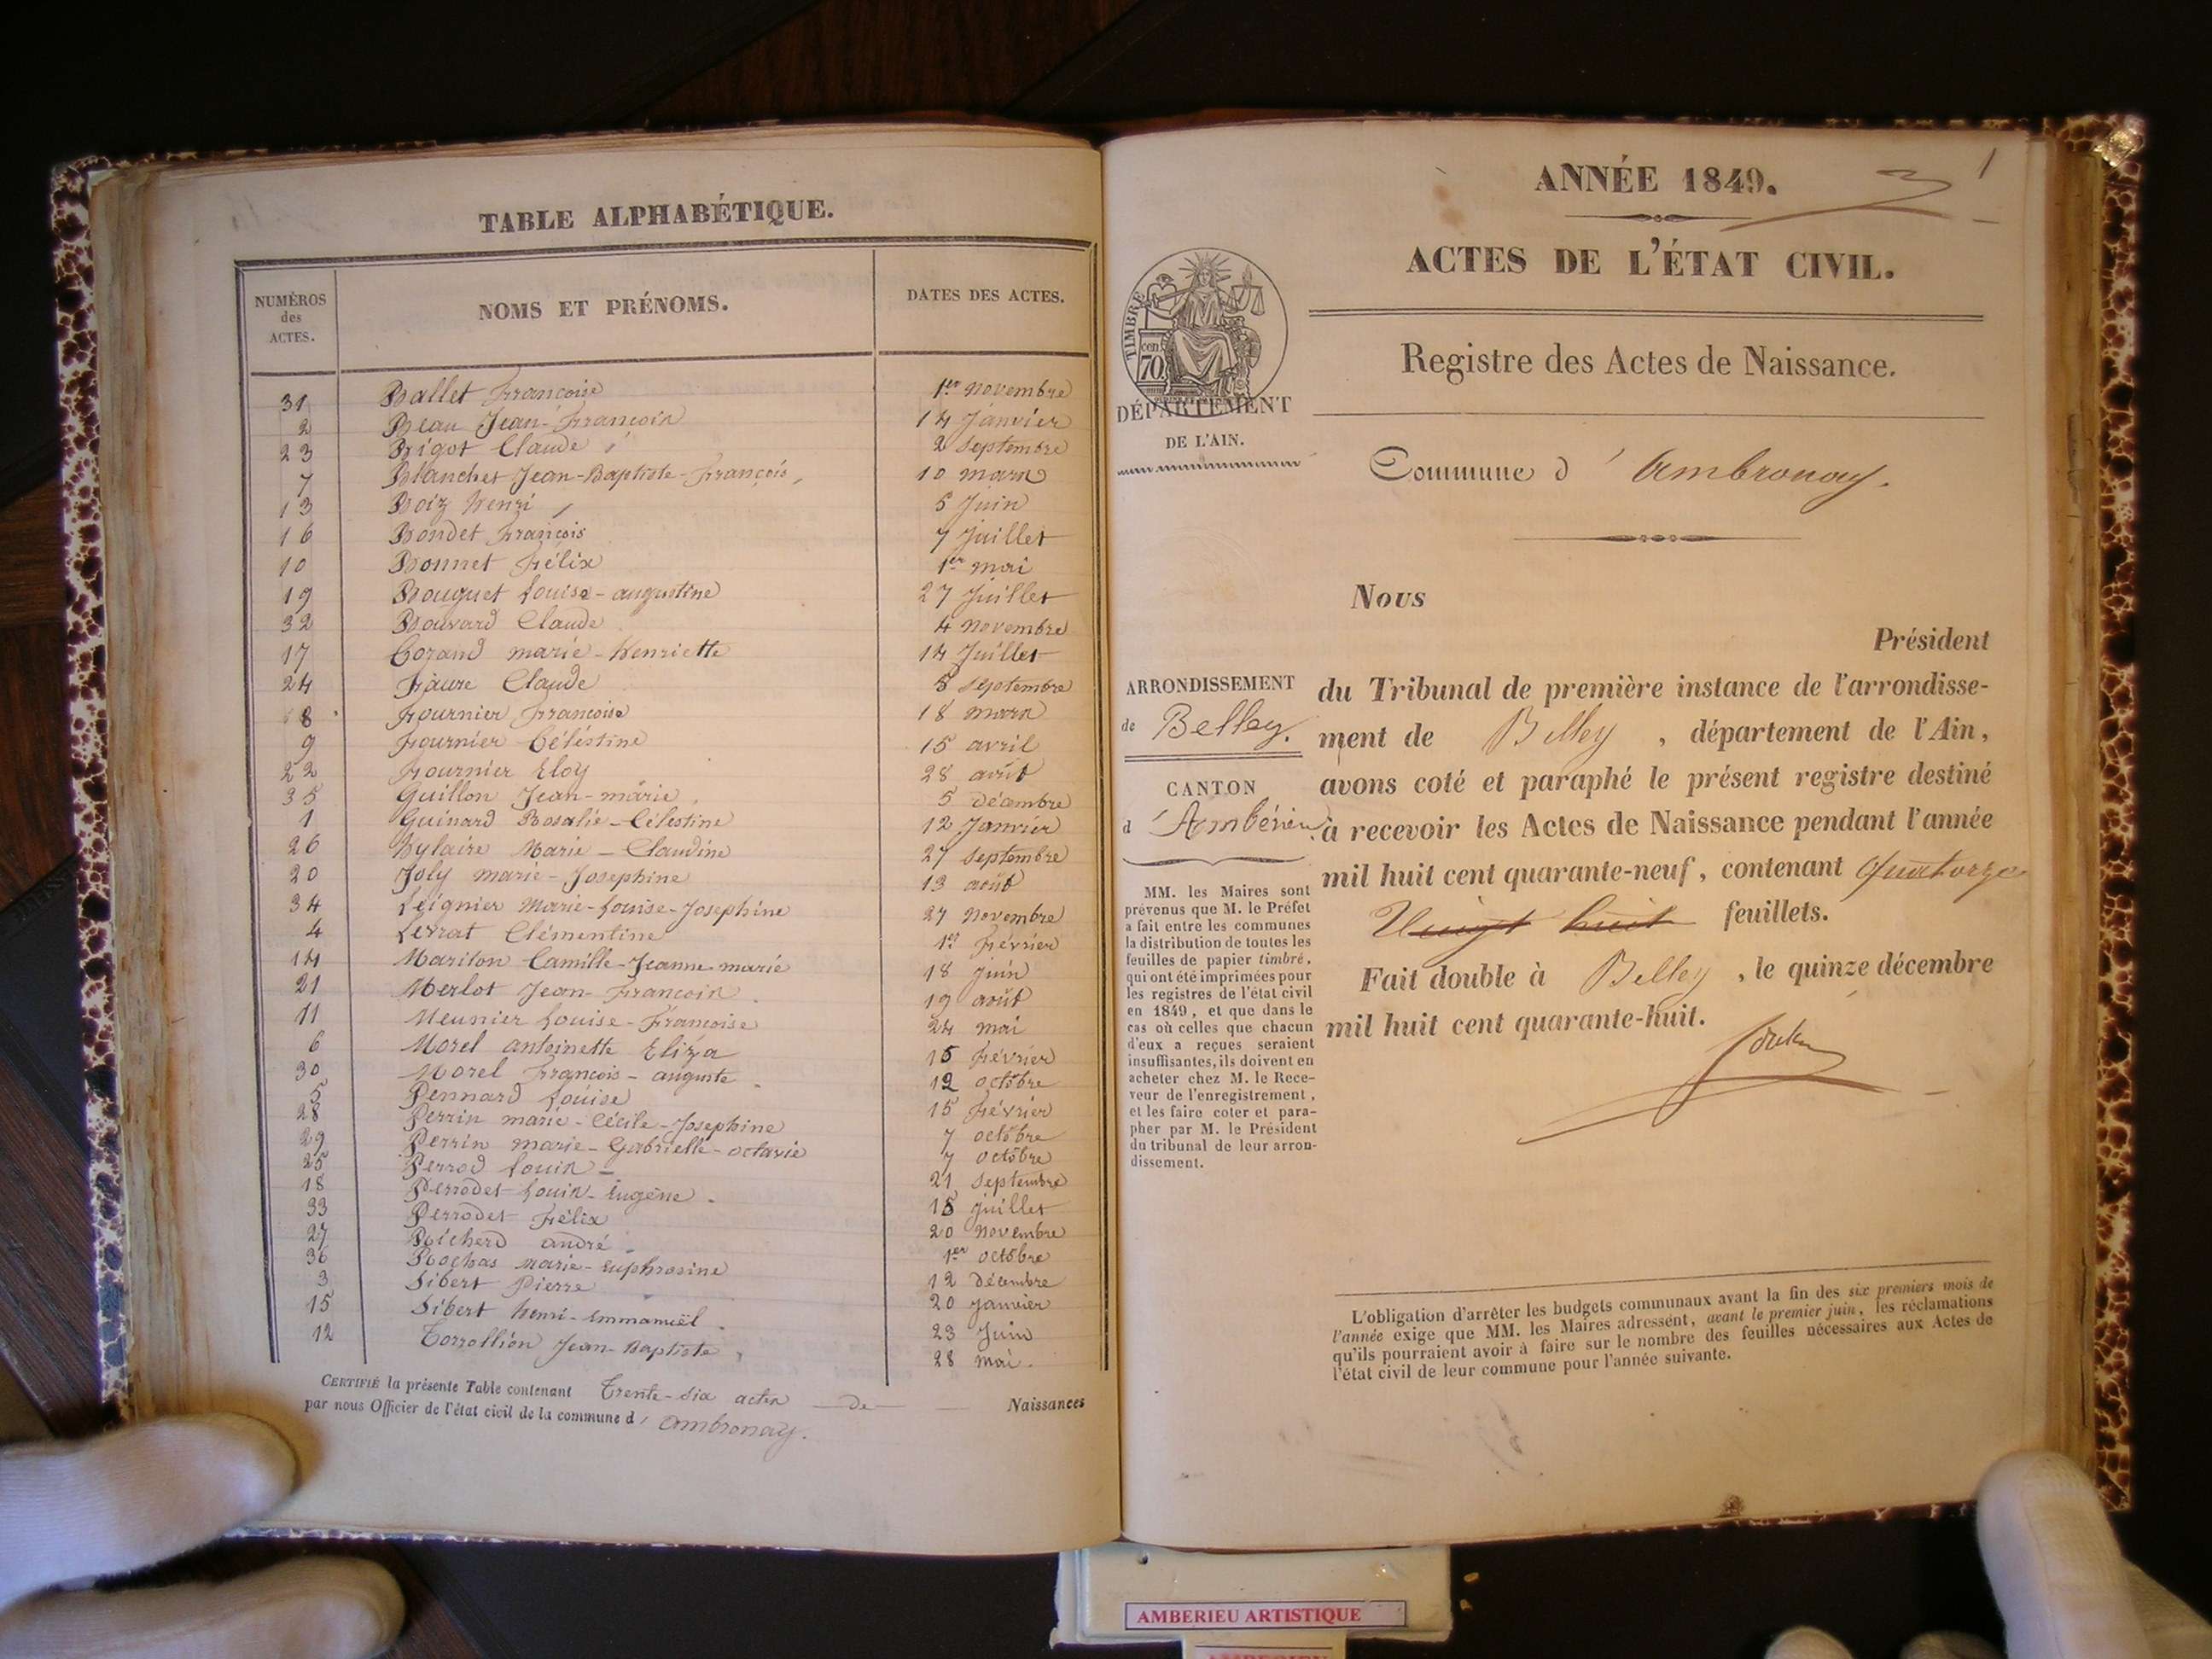 TABLE ALPHABÉTIQUE.
NUMÉROS des ACTES. NOMS ET PRÉNOMS. DATES DES ACTES.
31 Ballet Françoise 1er novembre
2 Beau Jean-François 14 Janvier
23 Bigot Claude 2 septembre
7 Blanchet Jean-Baptiste-François, 10 mars
13 Boiz henri 5 Juin
16 Bondet François 7 Juillet
10 Bonnet Félix 1er mai
19 Bouguet Louise-augustine 27 Juillet
32 Bouvard Claude 4 novembre
17 Cozand marie-henriette 14 Juillet
24 Faure Claude 5 septembre
8 Fournier Françoise 18 mars
9 Fournier Célestine 15 avril
22 Fournier Eloy 28 août
35 Guillon Jean-marie 5 décembre
1 Guinard Rosalie-Célestine 12 Janvier
26 hylaire Marie-Claudine 27 septembre
20 Joly marie-Josephine 13 août
34 Leignier Marie-Louise-Josephine 27 novembre
4 Lerrat Clémentine 1er Février
14 Mariton Camille-Jeanne-marie 18 juin
21 Merlot Jean-François 19 août
11 Meunier Louise-Françoise 24 mai
6 Morel antoinette Eliza 15 Février
30 Morel François-auguste 12 octobre
5 Pennard Louise 15 Février
28 Perrin marie-Cécile-Josephine 7 octobre
29 Perrin marie-Gabrielle-octavie 7 octobre
25 Perrod Louis 21 septembre
18 Perrodet Louis-Eugène 15 juillet
33 Perrodet Félix 20 novembre
27 Richerd andré 1er octobre
36 Rochas Marie-euphrosine 12 décembre
3 Sibert Pierre 20 janvier
15 Sibert henri-Emmanuël 23 Juin
12 Torrollion Jean-Baptiste 28 mai.
CERTIFIÉ la présente Table contenant Trente-six actes de Naissances
par nous Officier de l'état civil de la commune d' ambronay.
1
ANNÉE 1849.
ACTES DE L'ÉTAT CIVIL.
TIMBRE
70 cen
DÉPARTEMENT
DE L'AIN.
Registre des Actes de Naissance.
Commune d' Ambronay.
Nous
Président
du Tribunal de première instance de l'arrondisse-
ment de Belley, département de l'Ain,
avons coté et paraphé le présent registre destiné
à recevoir les Actes de Naissance pendant l'année
mil huit cent quarante-neuf, contenant quatorze
Vingt huit feuillets.
Fait double à Belley, le quinze décembre
mil huit cent quarante-huit.
ARRONDISSEMENT
de Belley.
CANTON
d'Ambérieu
MM. les Maires sont
prévenus que M. le Préfet
a fait entre les communes
la distribution de toutes les
feuilles de papier timbré,
qui ont été imprimées pour
les registres de l'état civil
en 1849, et que dans le
cas où celles que chacun
d'eux a reçues seraient
insuffisantes, ils doivent en
acheter chez M. le Rece-
veur de l'enregistrement,
et les faire coter et para-
pher par M. le Président
du tribunal de leur arron-
dissement.
L'obligation d'arrêter les budgets communaux avant la fin des six premiers mois de
l'année exige que MM. les Maires adressent, avant le premier juin, les réclamations
qu'ils pourraient avoir à faire sur le nombre des feuilles nécessaires aux Actes de
l'état civil de leur commune pour l'année suivante.
AMBERIEU ARTISTIQUE